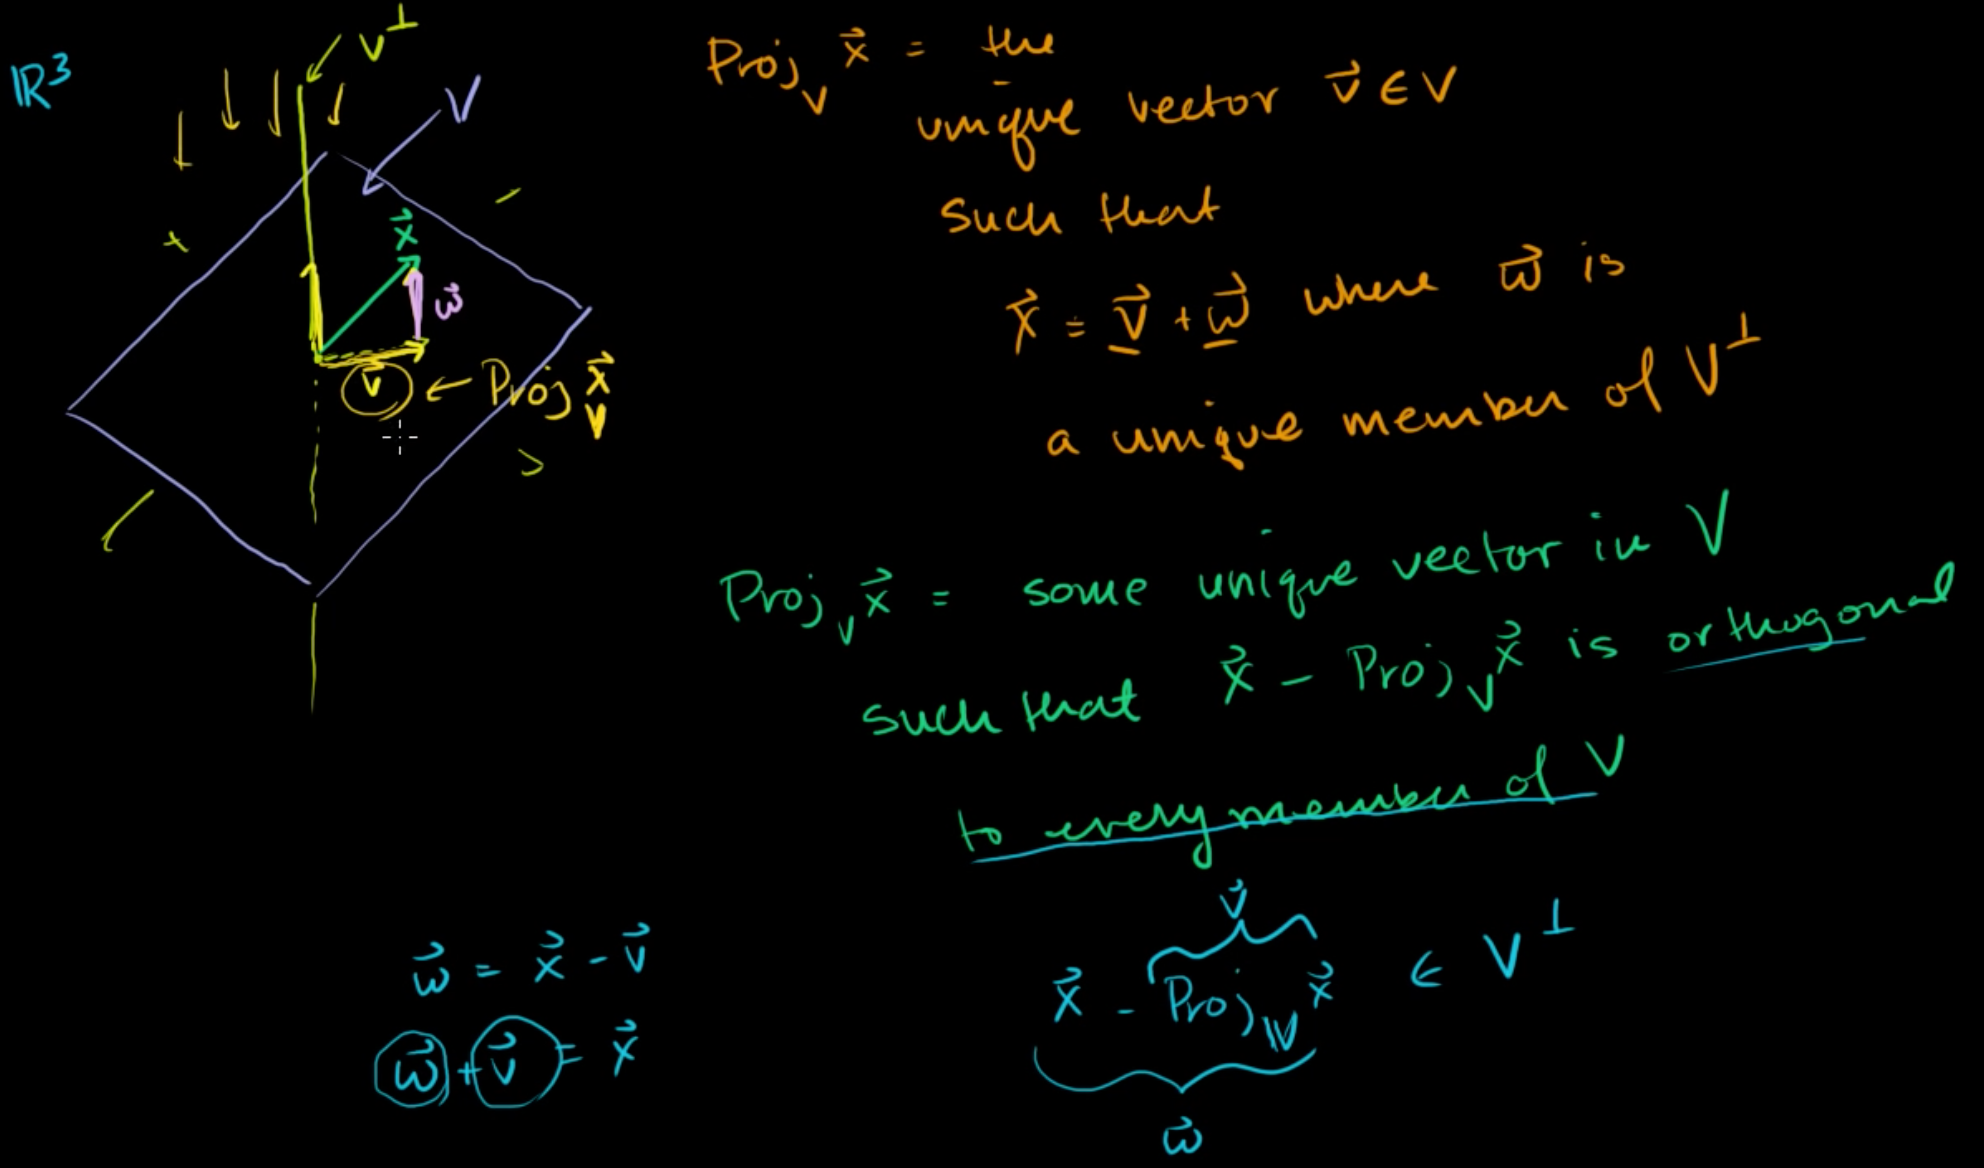 ℝ³
V⊥
V
x⃗
w⃗
v⃗ ← Proj_V x⃗
Proj_V x⃗ = the
unique vector v⃗ ∈ V
such that
x⃗ = v⃗ + w⃗ where w⃗ is
a unique member of V⊥
Proj_V x⃗ = some unique vector in V
such that x⃗ - Proj_V x⃗ is orthogonal
to every member of V
v⃗
x⃗ - Proj_V x⃗ ∈ V⊥
w⃗
w⃗ = x⃗ - v⃗
w⃗ + v⃗ = x⃗